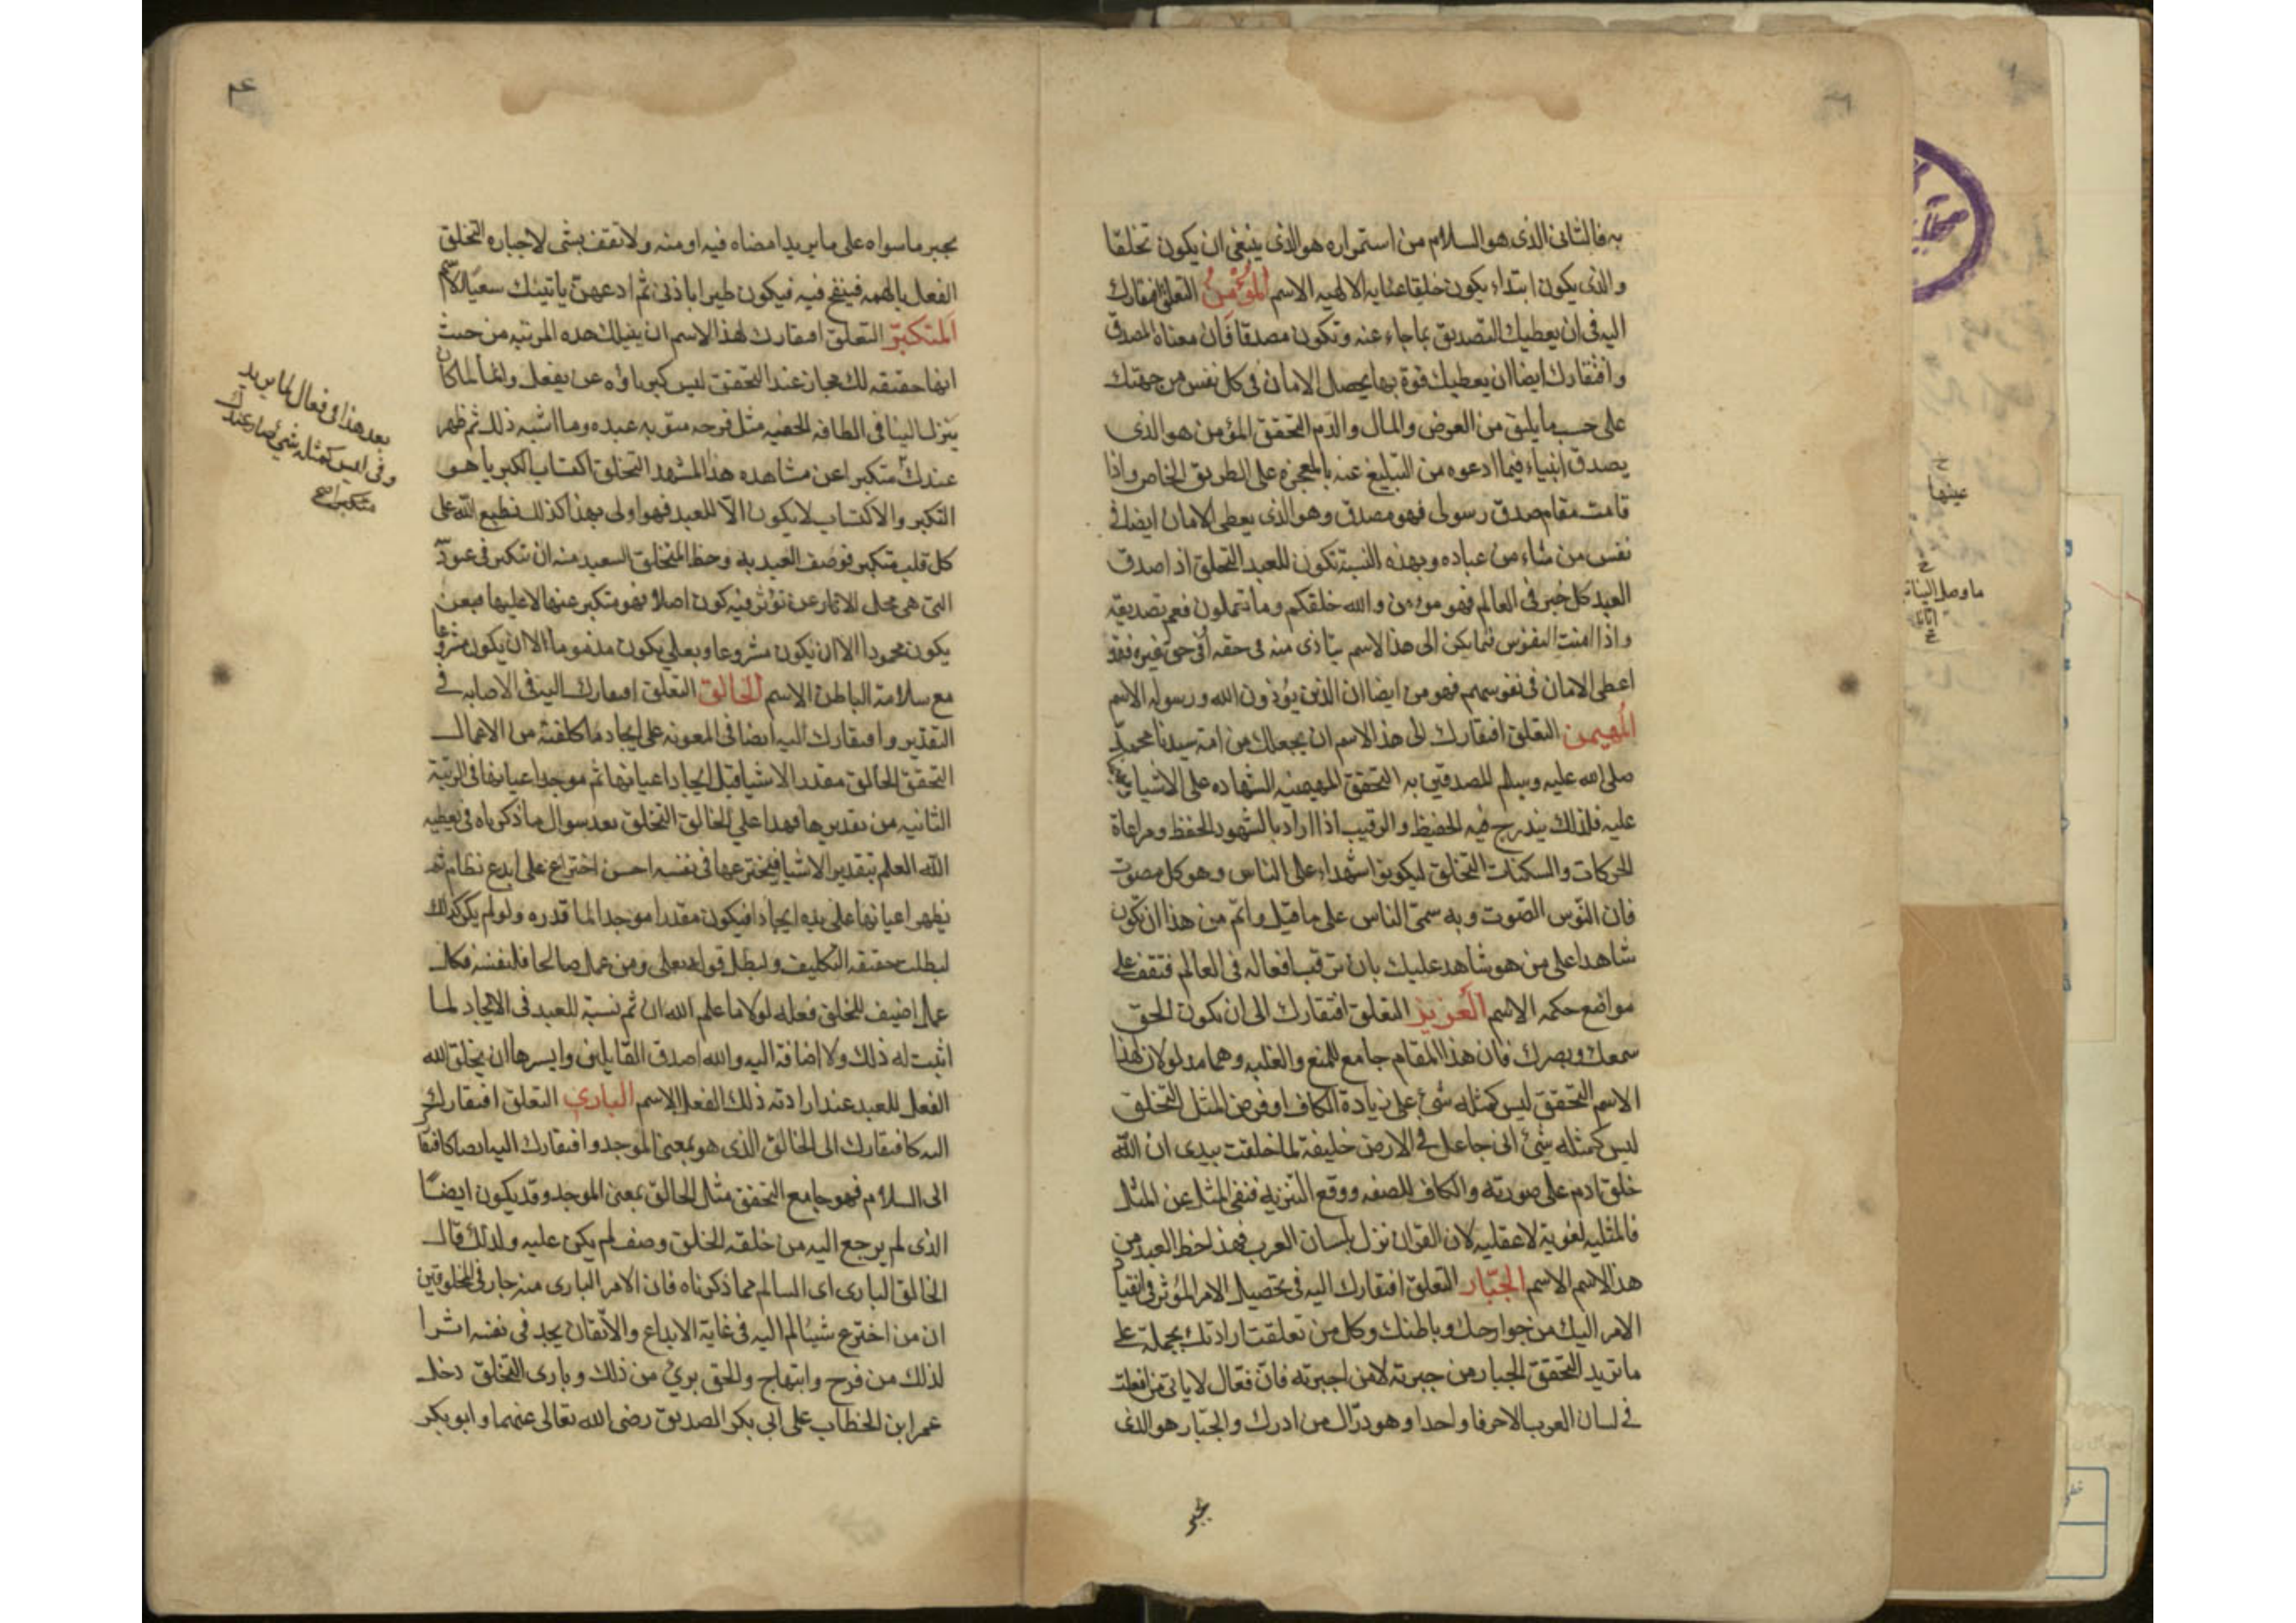 به فالثانى الذى هو السلام من استمراره هو الذى ينبغى ان يكون تخلقا
والذى يكون ابتداء يكون خلقا عنايه الالهيه الاسم المؤمن التعلق افتقارك
اليه فى ان يعطيك التصديق بماجاء عنه وتكون مصدقا فان معناه المصدق
وافتقارك ايضا ان يعطيك قوة بها يحصل الامان فى كل نفس من جهتك
على حسب ما يليق من العرض والمال والدم التحقق المؤمن هو الذى
يصدق انبياءه فيما ادعوه من التبليغ عنه بالمعجزه على الطريق الخاص واذا
قامت مقام صدق رسولى فهو مصدق وهو الذى يعطى الامان ايضا فى
نفس من شاء من عباده وبهذه النسبة تكون للعبد التخلق اذا صدق
العبد كل خبر فى العالم فهو مومن والله خلقكم وما تعملون فعم تصديقه
واذا امنت النفوس فيما يكن الى هذا الاسم يتاذى منه فى حقه او فى حق غيره فقد
اعطى الامان فى نفوسهم فهو مومن ايضا ان الذين يؤذون الله ورسوله الاسم
المهيمن التعلق افتقارك الى هذا الاسم ان يجعلك من امة سيدنا محمد
صلى الله عليه وسلم المصدقين به التحقق المهيمنيه الشهاده على الاشياء
عليه فلذلك يندرج فيه الحفيظ والرقيب اذا اراد بالشهود الحفظ ومراعاة
الحركات والسكنات التخلق ليكونوا شهداء على الناس وهو كل مصوت
فان النوس الصوت وبه سمى الناس على ما قيل واتم من هذا ان تكون
شاهدا على من هو شاهد عليك بان ترقب افعاله فى العالم فتقف على
مواضع حكمه الاسم العزيز التعلق افتقارك الى ان يكون الحق
سمعك وبصرك فان هذا المقام جامع للمنع والغلبه وهما مدلولان لهذا
الاسم التحقق ليس كمثله شئ على زيادة الكاف او فرض المثل التخلق
ليس كمثله شئ انى جاعل فى الارض خليفة لما خلقت بيدى ان الله
خلق ادم على صورته والكاف للصفه ووقع التنزيه فنفى المثل عن المثل
فالمثليه لغوية لا عقليه لان القران نزل بلسان العرب فهذا حظ العبد من
هذا الاسم الاسم الجبار التعلق افتقارك اليه فى تحصيل الامر المؤثر فى انقياد
الامر اليك من جوارحك وباطنك وكل من تعلقت ارادتك بحمله على
ما تريد التحقق الجبار من جبرته لا من اجبرته فان فعال لا ياتى من افعلت
فى لسان العرب الا حرفا واحدا وهو دراك من ادرك والجبار هو الذى
يجبر
يجبر ما سواه على ما يريد امضاه فيه او منه ولا تقف بشى لاجباره التخلق
الفعل بالهمه فينفخ فيه فيكون طيرا باذنى ثم ادعهن ياتينك سعيا الاسم
المتكبر التعلق افتقارك لهذا الاسم ان ينيلك هذه المرتبه من حيث
انها حقيقه لك مجاز عند التحقق ليس كبرياؤه عن يفعل وانما لما كان
ينزل الينا فى الطافه الخفيه مثل فرحه بتوبه عبده وما اشبه ذلك ثم ظهر
عندك متكبرا عن مشاهده هذا المشهد التخلق اكتساب الكبريا هو
التكبر والاكتساب لا يكون الا للعبد فهو اولى بهذا كذلك يطبع الله على
كل قلب متكبر فوصف العبد به وحظ المتخلق السعيد منه ان يتكبر فى عبود
التى هى محل الاثار عن تؤثر فيه كون اصلا فهو متكبر عنها لا عليها فبعن
يكون محمودا الا ان يكون مشروعا وبعلى يكون مذموما الا ان يكون مشروعا
مع سلامة الباطن الاسم الخالق التعلق افتقارك اليه فى الاصابه فى
التقدير وافتقارك اليه ايضا فى المعونه على ايجاد ما كلفته من الاعمال
التحقق الخالق مقدر الاشيا قبل ايجاد اعيانها ثم موجد اعيانها فى الرتبة
الثانيه من تقديرها فهذا على الخالق التخلق بعد سوال ما ذكرناه فى يعطيه
الله العلم بتقدير الاشيا فيخترعها فى نفسه احسن اختراع على ابدع نظام ثم
يظهر اعيانها على يديه ايجادا فيكون مقدرا موجدا لما قدره ولو لم يكن كذلك
لبطلت حقيقه التكليف ولبطل قوله تعالى ومن عمل صالحا فلنفسه فكل
عمل اضيف للخلق فعله لولا ما علم الله ان ثم نسبة للعبد فى الايجاد لما
اثبت له ذلك ولا اضافه اليه والله اصدق القايلين وايسرها ان يخلق الله
الفعل للعبد عند ارادته ذلك الفعل الاسم البارى التعلق افتقارك
اليه كافتقارك الى الخالق الذى هو بمعنى الموجد وافتقارك اليه ايضا كافتقا
الى السلام فهو جامع التحقق مثل الخالق بمعنى الموجد وقد يكون ايضا
الذى لم يرجع اليه من خلقه الخلق وصف لم يكن عليه ولذلك قال
الخالق البارى اى السالم مما ذكرناه فان الامر البارى منه جار فى المخلوقين
ان من اخترع شيئا لم اليه فى غاية الابداع والاتقان يجد فى نفسه اثرا
لذلك من فرح وابتهاج والحق برئ من ذلك وبارى التخلق دخل
عمر ابن الخطاب على ابى بكر الصديق رضى الله تعالى عنهما وابو بكر
بعد هذا فى فعال لما يريد
وفى ليس كمثله شئ فصار عندك
متكبرا صح
عينها
ما وصل الينا